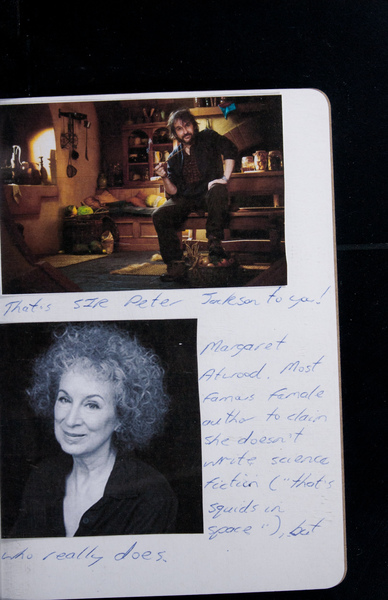 That's SIR Peter Jackson to you!
Margaret
Atwood. Most
famous female
author to claim
she doesn't
write science
fiction ("that's
squids in
space"), but
who really does.